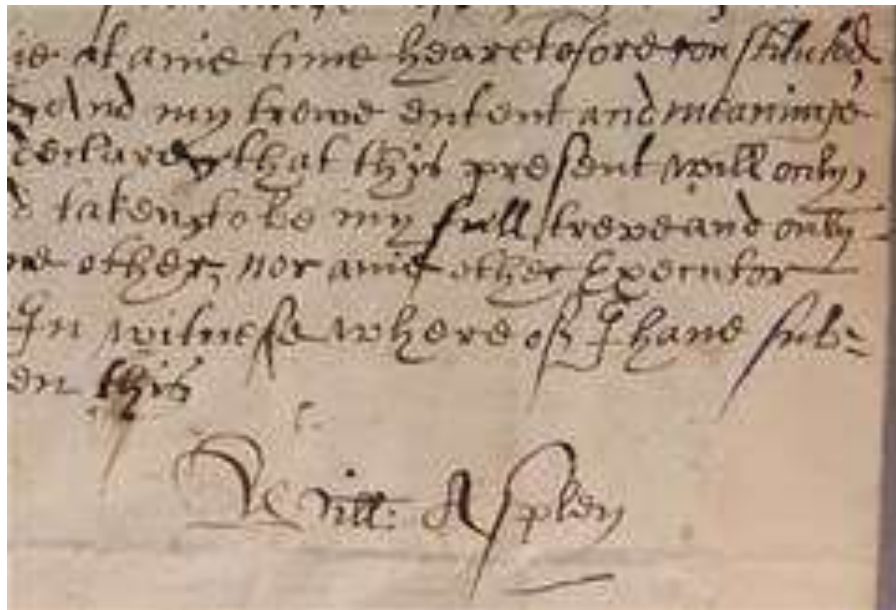 ie at anie time hearetofore constituted
And my trewe entent and meaninge
declare that this present will only,
taken to be my full, trewe and only
other, nor anie other Executor
In witnesse where of I have sub=
en this
Will: Aspley